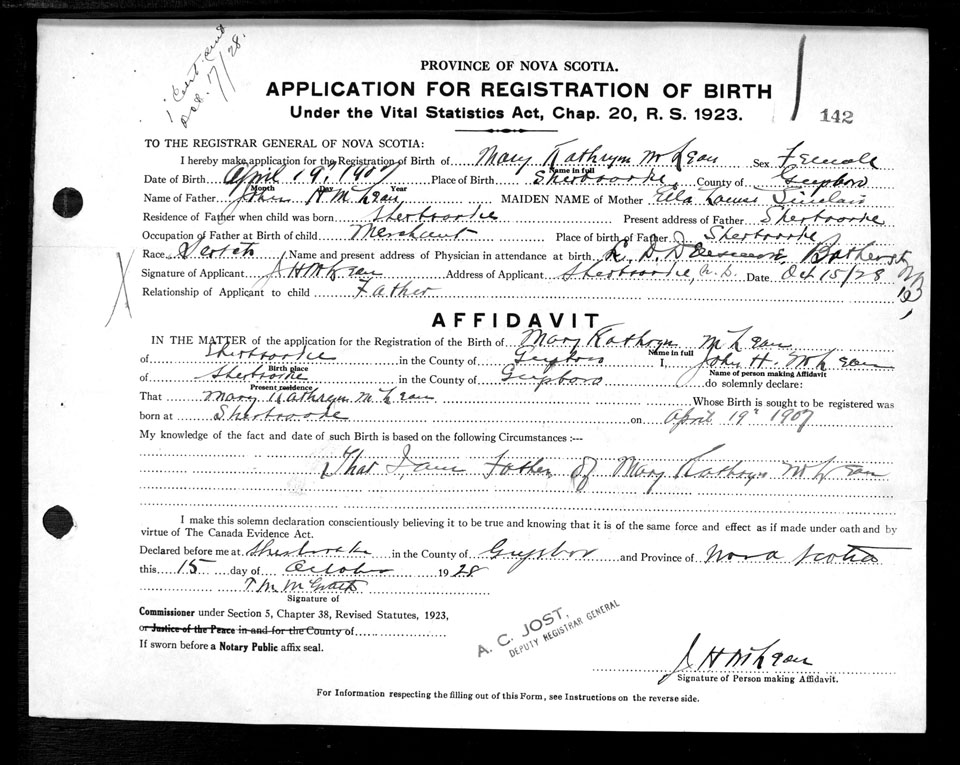 1 Cert. sent
Dec. 17/28.
PROVINCE OF NOVA SCOTIA.
APPLICATION FOR REGISTRATION OF BIRTH
Under the Vital Statistics Act, Chap. 20, R. S. 1923.
142
TO THE REGISTRAR GENERAL OF NOVA SCOTIA:
I hereby make application for the Registration of Birth of Mary Kathryn McLean Sex Female
Name in full
Date of Birth April 19th 1907 Place of Birth Sherbrooke County of Guysboro
Month Day Year
Name of Father John H McLean MAIDEN NAME of Mother Ella Sinclair
Residence of Father when child was born Sherbrooke Present address of Father Sherbrooke
Occupation of Father at Birth of child Merchant Place of birth of Father Sherbrooke
Race Scotch Name and present address of Physician in attendance at birth Bathurst N B
Signature of Applicant J H McLean Address of Applicant Sherbrooke, N. S. Date Oct 15/28
Relationship of Applicant to child Father
AFFIDAVIT
IN THE MATTER of the application for the Registration of the Birth of Mary Kathryn McLean
Name in full
of Sherbrooke in the County of Guysboro I, John H. McLean
Birth place
Name of person making Affidavit
of Sherbrooke in the County of Guysboro do solemnly declare:
Present residence
That Mary Kathryn McLean Whose Birth is sought to be registered was
born at Sherbrooke on April 19th 1907
My knowledge of the fact and date of such Birth is based on the following Circumstances :—
That I am Father of Mary Kathryn McLean
I make this solemn declaration conscientiously believing it to be true and knowing that it is of the same force and effect as if made under oath and by
virtue of The Canada Evidence Act.
Declared before me at Sherbrooke in the County of Guysboro and Province of Nova Scotia
this 15 day of October 1928
T. M. McGrath
Signature of
Commissioner under Section 5, Chapter 38, Revised Statutes, 1923,
or Justice of the Peace in and for the County of
If sworn before a Notary Public affix seal.
A. C. JOST,
DEPUTY REGISTRAR GENERAL
J H McLean
Signature of Person making Affidavit.
For Information respecting the filling out of this Form, see Instructions on the reverse side.